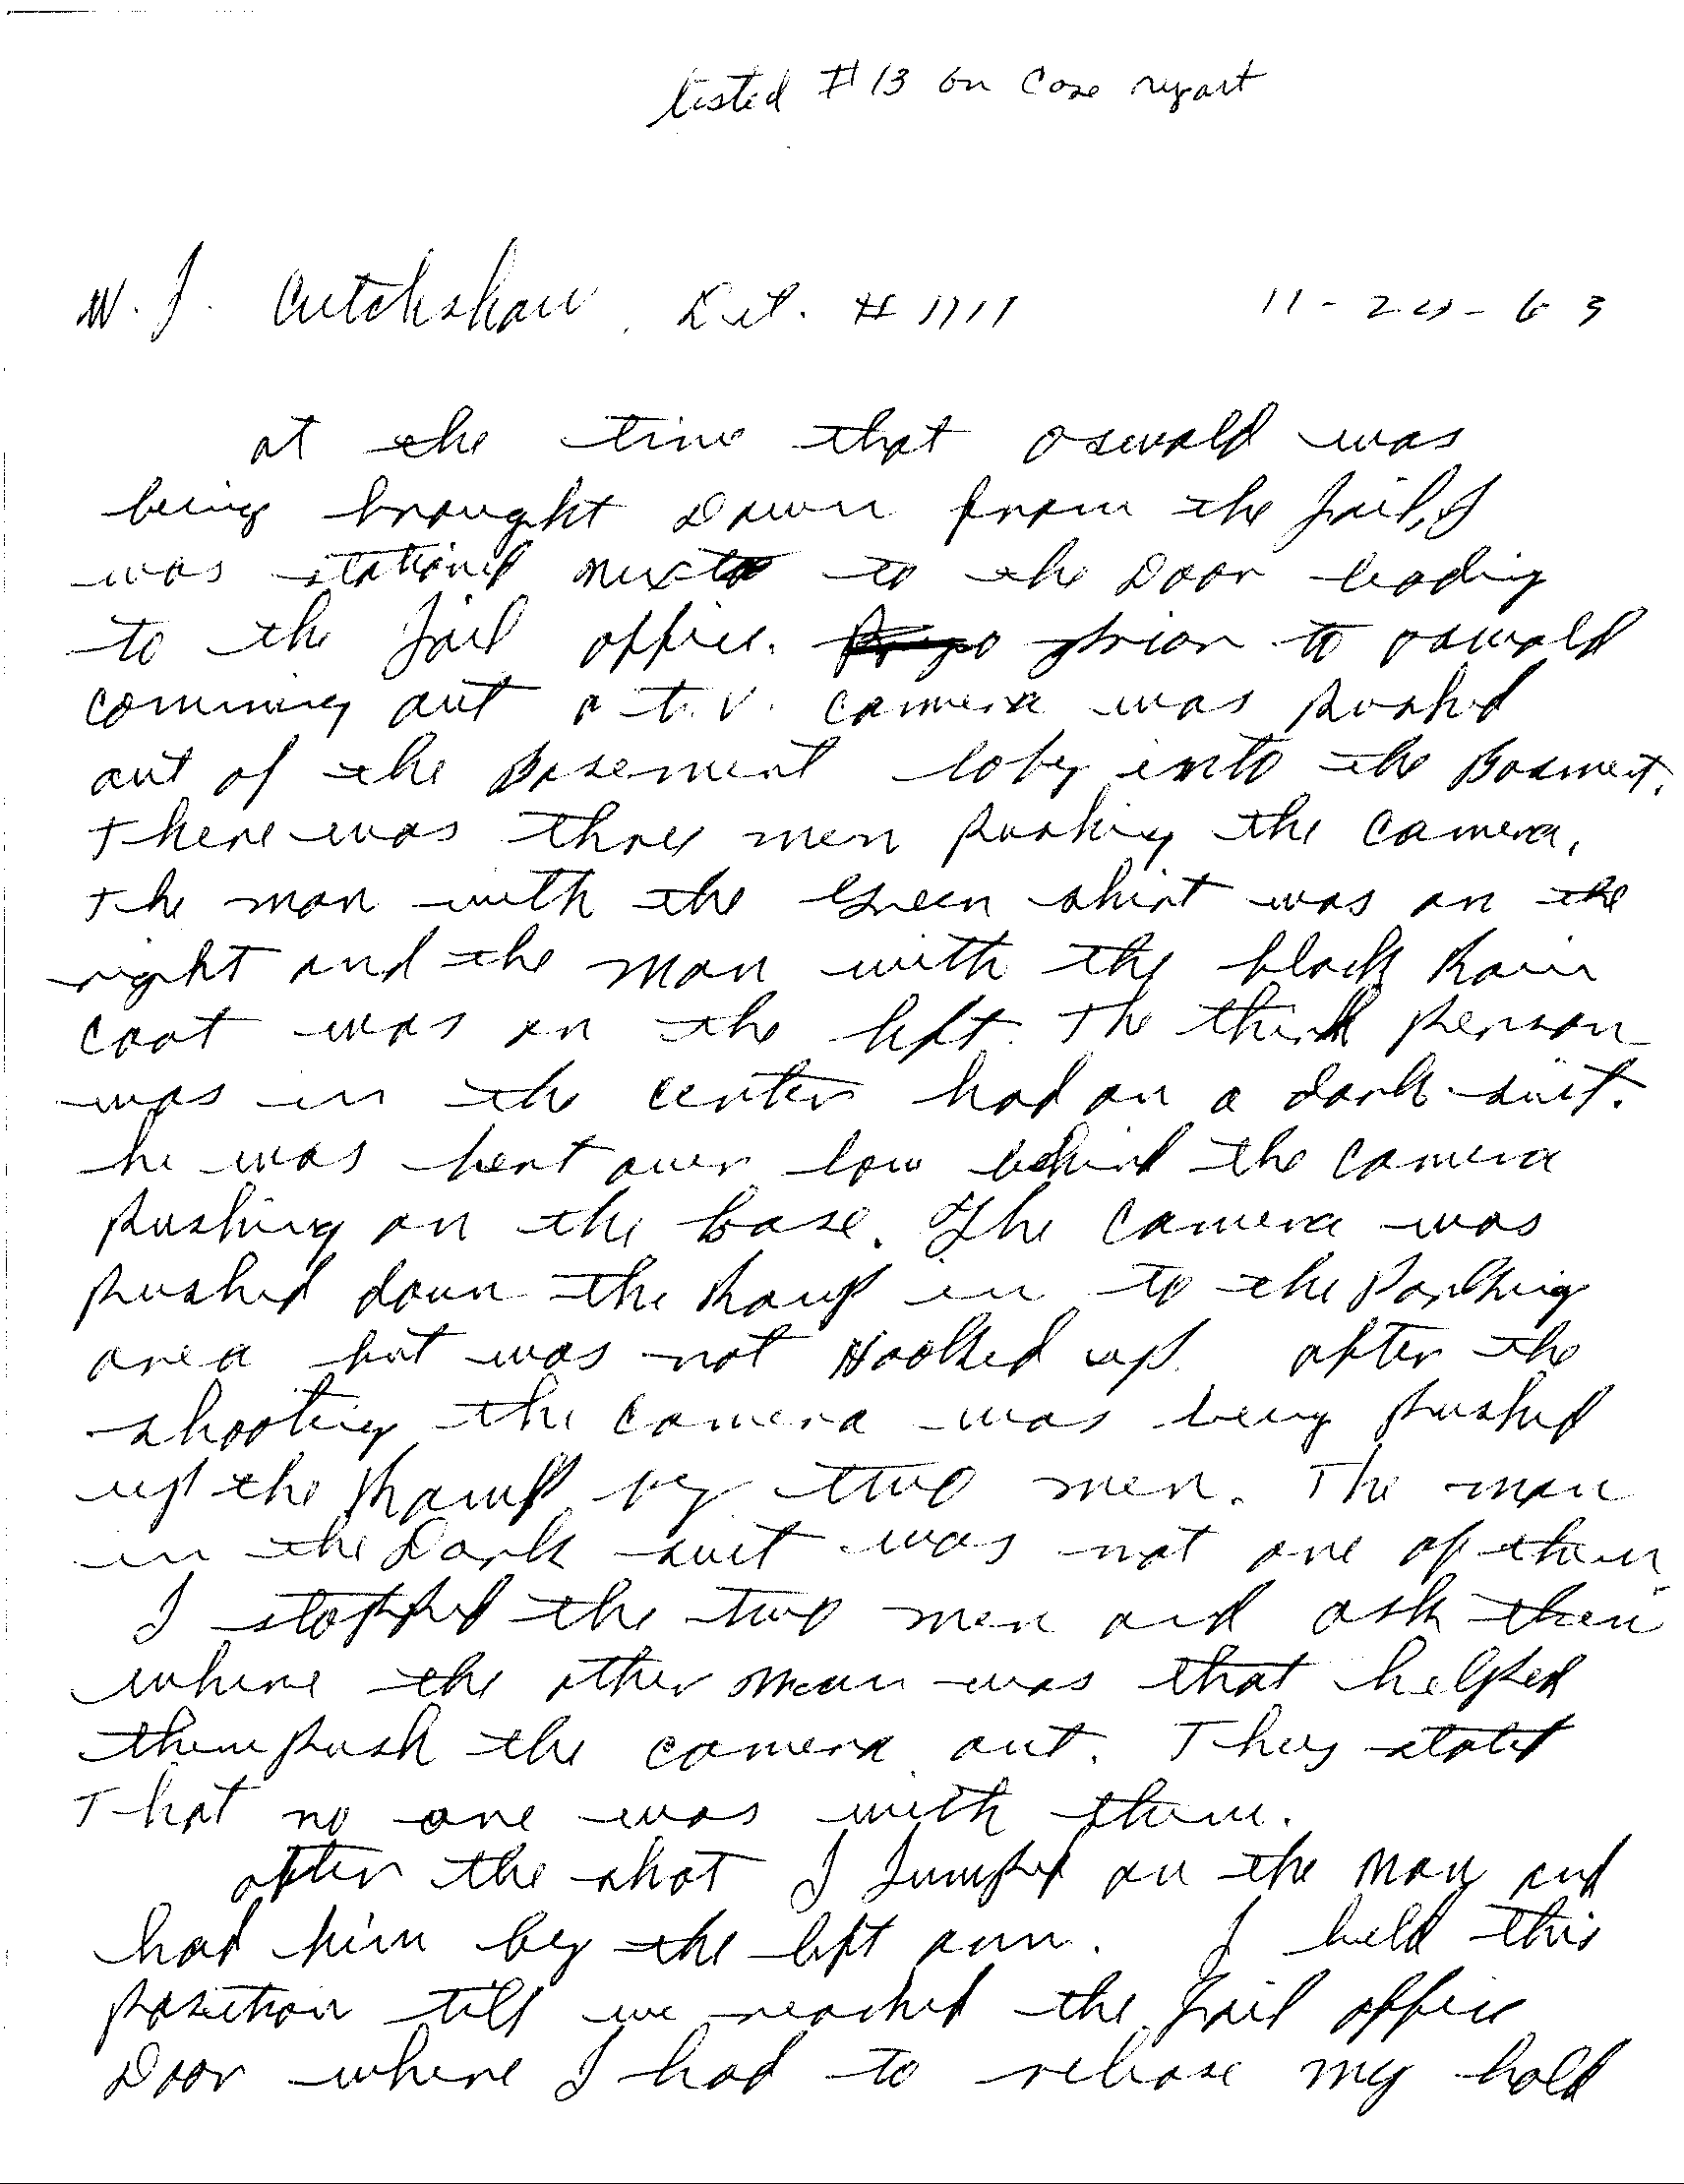 listed #13 on Case report
W. J. Cutchshaw, Det. # 1711 11-24-63
at the time that oswald was
being brought Down from the Jail, I
was stationed next to the Door leading
to the Jail office. prior to oswald
comming out a t.v. camera was pushed
out of the basement loby into the Basment.
There was three men pushing the camera,
the man with the Green shirt was on the
right and the man with the black Rain
coat was on the left. The third person
was in the center had on a dark suit.
he was bent over low behind the camera
pushing on the base. The camera was
pushed down the Ramp in to the Parking
area but was not Hooked up. after the
shooting the camera was being pushed
up the Ramp by two men. The man
in the Dark suit was not one of them.
I stopped the two men and ask them
where the other man was that helped
them push the camera out. They stated
That no one was with them.
after the shot I Jumped on the man and
had him by the left arm. I held this
position till we reached the Jail office
Door where I had to release my hold